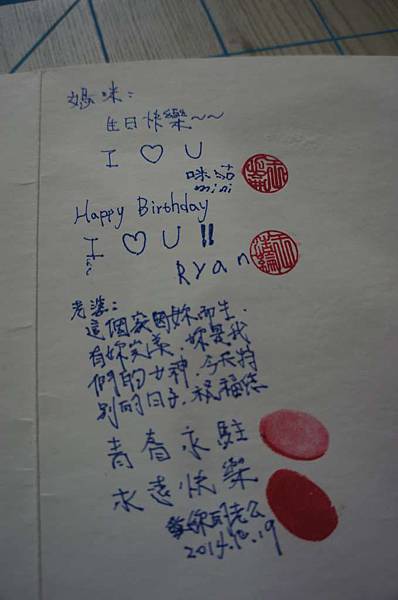 媽咪:
生日快樂~~
I ♡ U
咪咕
mini
Happy Birthday
I ♡ U !!
Ryan
老婆:
這個家因妳而生,
有妳完美,妳是我
們的女神,今天特
別的日子,祝福您
青春永駐
永遠快樂
妳的老公
2014.10.19